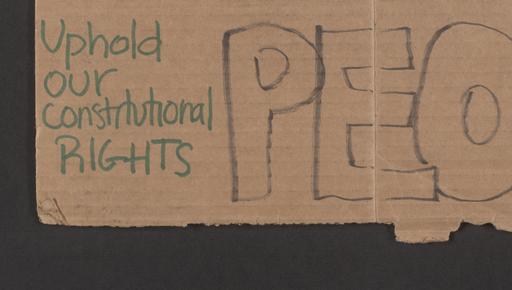 Uphold
our
constitutional
RIGHTS
PEO